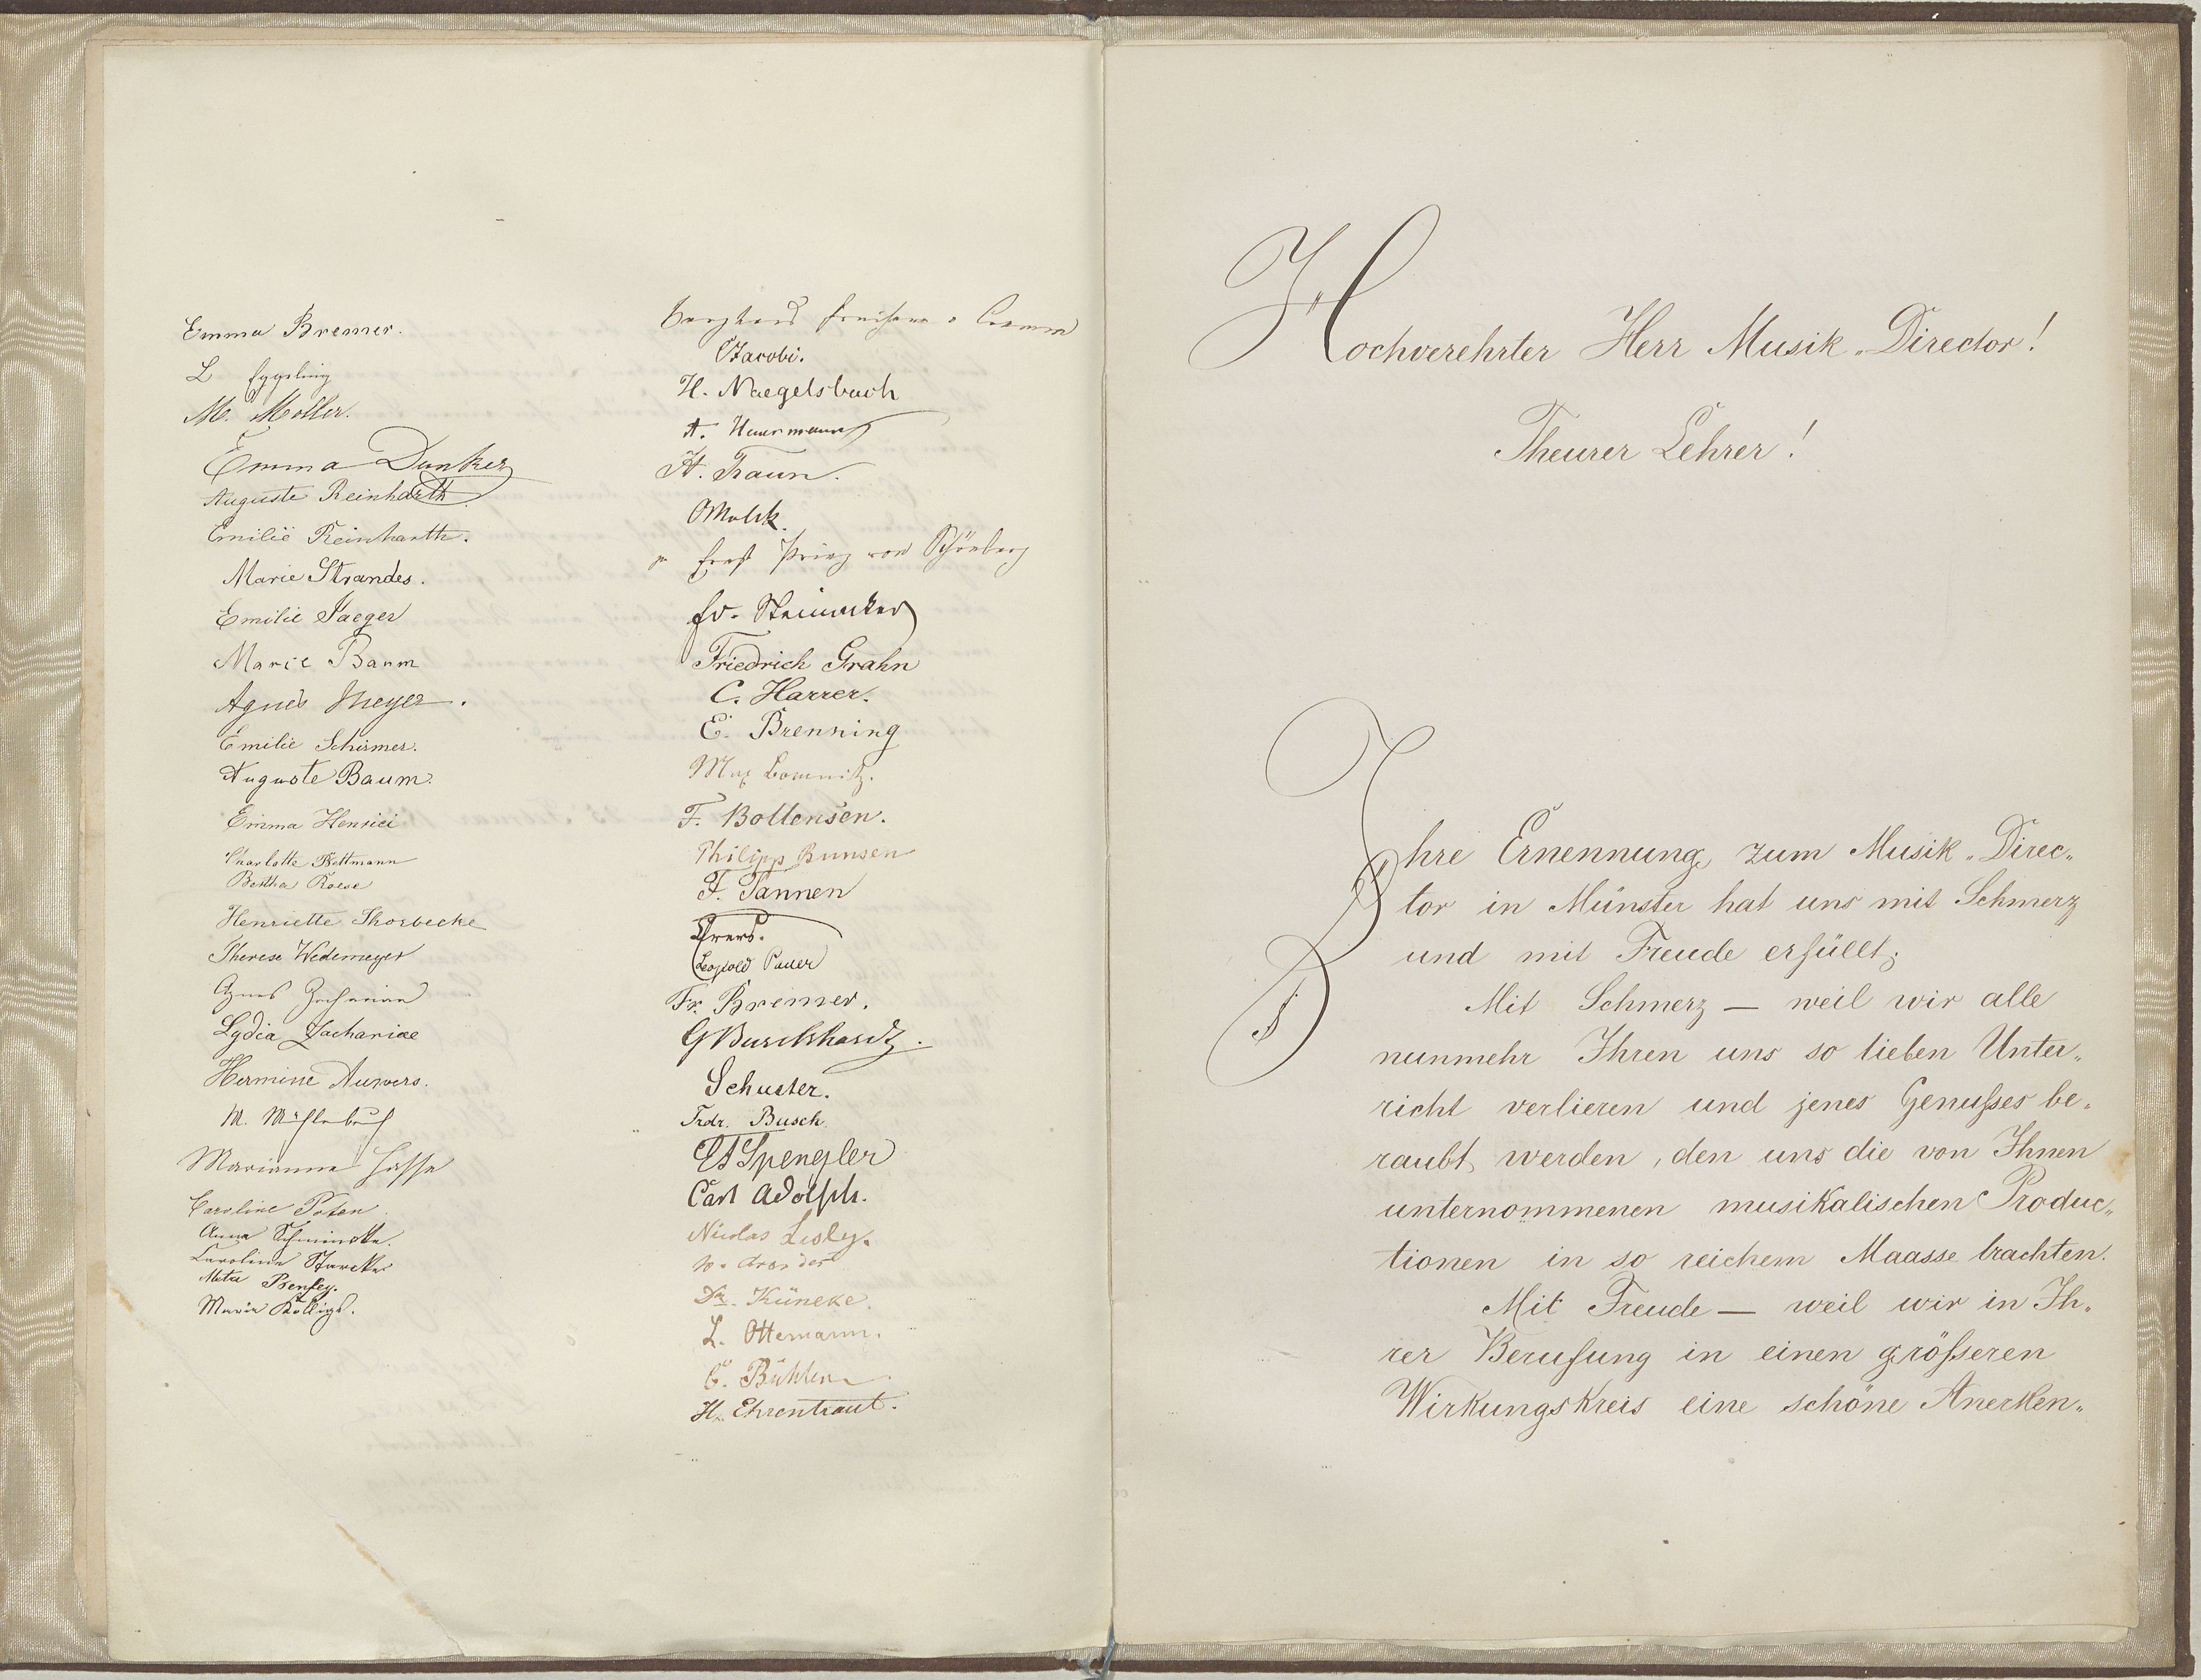 Emma Bremer.
L Eggeling
M. Möller.
Emma Dunker
Auguste Reinharth
Emilie Reinharth.
Marie Strandes.
Emilie Jaeger
Marie Baum
Agnes Meyer.
Emilie Schirmer.
Auguste Baum.
Emma Henrici
Charlotte
Bertha Roese
Henriette Thorbecke
Therese Wedemeyer
Agnes Zachariae
Lydia Zachariae
Hermine Auwers.
M. Mühlenbruch
Marianne Hasse
Caroline Poten
Anna Schmincke.
Caroline Starcke
Meta Benfey.
Marie
Jacobi.
H. Naegelsbach
A.
H. Traun.
Ernst Prinz von Schönburg
Fr. Steinacker
Friedrich Grahn
C. Harrer.
E. Brenning
Max
F. Bollensen.
Philipp Bunsen
F. Tannen
Leopold Pauer
Fr. Bremer.
G Burckhardt.
Schuster.
Frdr. Busch.
Spengler
Carl Adolph.
Nicolas
Dr. Küneke.
L. Ottemann.
H. Ehrentraut.
Hochverehrter Herr Musik-Director!
Theurer Lehrer!
Ihre Ernennung zum Musik-Direc-
tor in Münster hat uns mit Schmerz
und mit Freude erfüllt;
Mit Schmerz — weil wir alle
nunmehr Ihren uns so lieben Unter-
richt verlieren und jenes Genußes be-
raubt werden, den uns die von Ihnen
unternommenen musikalischen Produc-
tionen in so reichem Maasse brachten.
Mit Freude — weil wir in Ih-
rer Berufung in einen größeren
Wirkungskreis eine schöne Anerken-